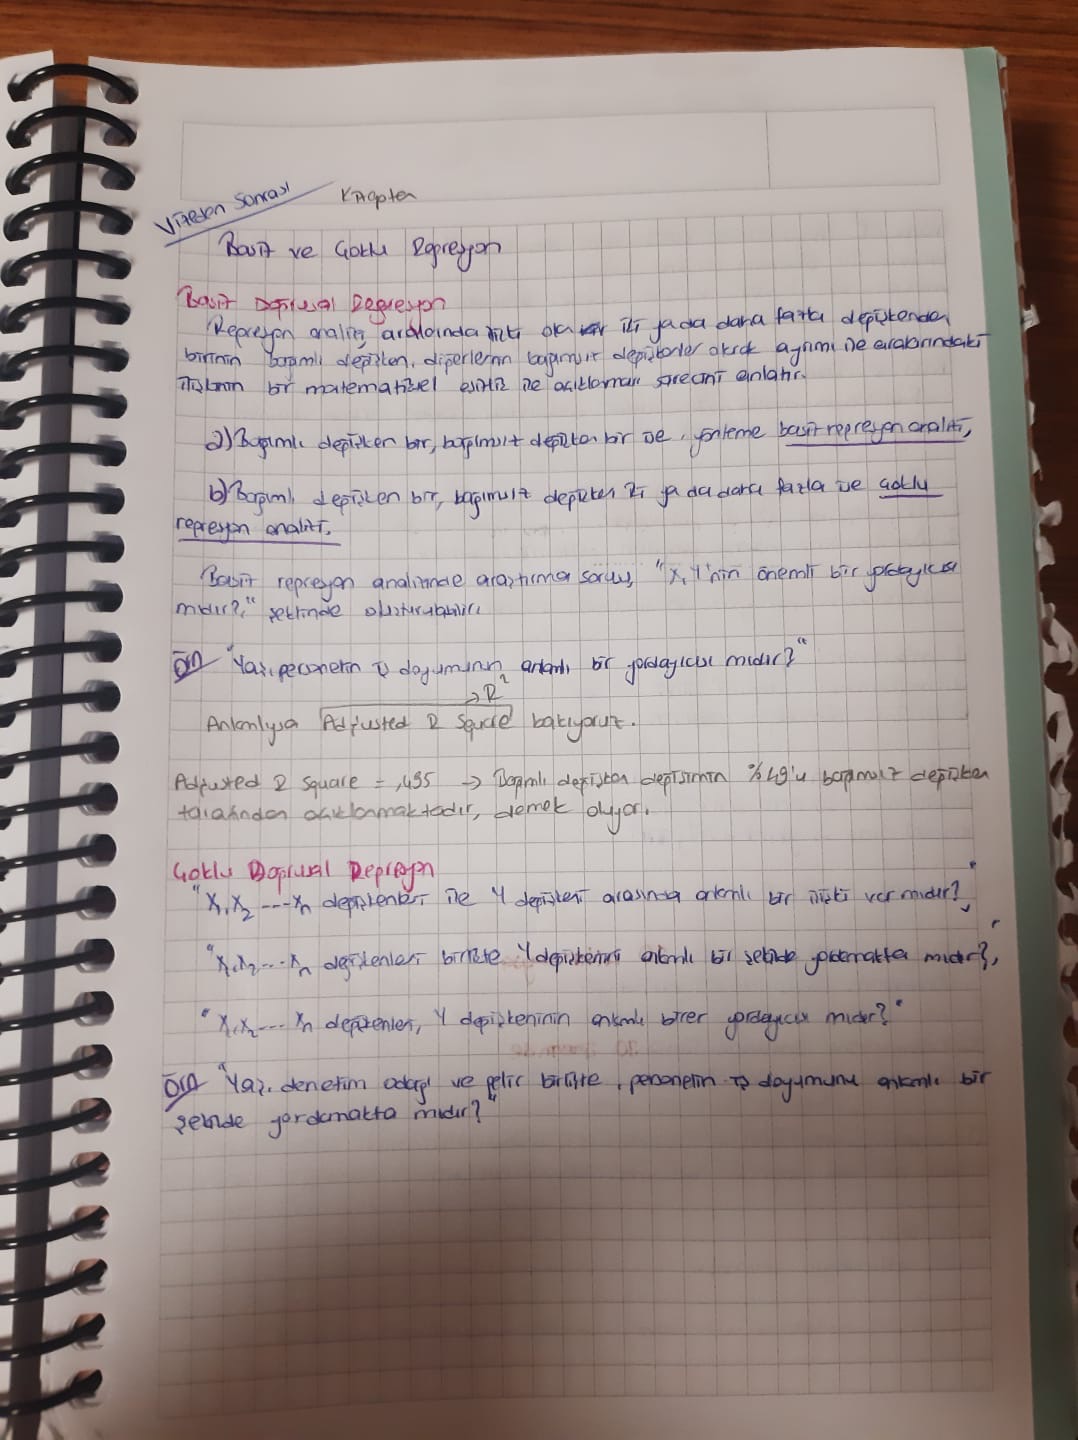 Vizeden Sonrası
Kitaptan
Basit ve Çoklu Regresyon
Basit Doğrusal Regresyon
Regresyon analizi, aralarında ilişki olan iki ya da daha fazla değişkenden
birinin bağımlı değişken, diğerlerinin bağımsız değişkenler olarak ayrımı ile aralarındaki
ilişkinin bir matematiksel eşitlik ile açıklaması sürecini anlatır.
a) Bağımlı değişken bir, bağımsız değişken bir ise, yönteme basit regresyon analizi,
b) Bağımlı değişken bir, bağımsız değişken iki ya da daha fazla ise çoklu
regresyon analizi.
Basit regresyon analizinde araştırma sorusu, "X, Y'nin önemli bir yordayıcısı
mıdır?," şeklinde oluşturulabilir.
Örn "Yaş, personelin iş doyumunun anlamlı bir yordayıcısı mıdır?"
→ R²
Anlamlıysa Adjusted R Square bakıyoruz.
Adjusted R Square = ,495 → Bağımlı değişken değişiminin %49'u bağımsız değişken
tarafından açıklanmaktadır, demek oluyor.
Çoklu Doğrusal Regresyon
"X₁, X₂ ---- Xn değişkenleri ile Y değişkeni arasında anlamlı bir ilişki var mıdır?"
"X₁, X₂ --- Xn değişkenleri birlikte Y değişkenini anlamlı bir şekilde yordamakta mıdır?"
"X₁, X₂ --- Xn değişkenleri, Y değişkeninin anlamlı birer yordayıcısı mıdır?"
Örn "Yaş, denetim odağı ve gelir birlikte, personelin iş doyumunu anlamlı bir
şekilde yordamakta mıdır?"